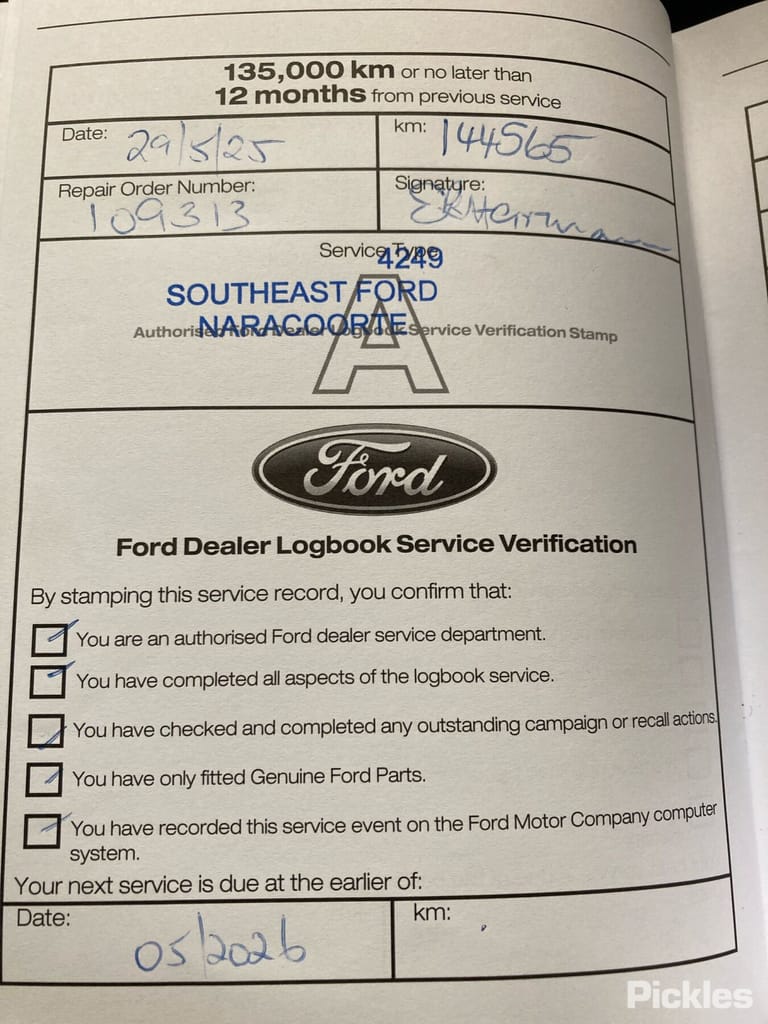 135,000 km or no later than
12 months from previous service
Date: 29/5/25
km: 144565
Repair Order Number:
109313
Signature:
Service Type
4249
SOUTHEAST FORD
NARACOORTE
Authorised Ford Dealer Logbook Service Verification Stamp
A
Ford
Ford Dealer Logbook Service Verification
By stamping this service record, you confirm that:
You are an authorised Ford dealer service department.
You have completed all aspects of the logbook service.
You have checked and completed any outstanding campaign or recall actions.
You have only fitted Genuine Ford Parts.
You have recorded this service event on the Ford Motor Company computer
system.
Your next service is due at the earlier of:
Date:
km:
05/2026
Pickles